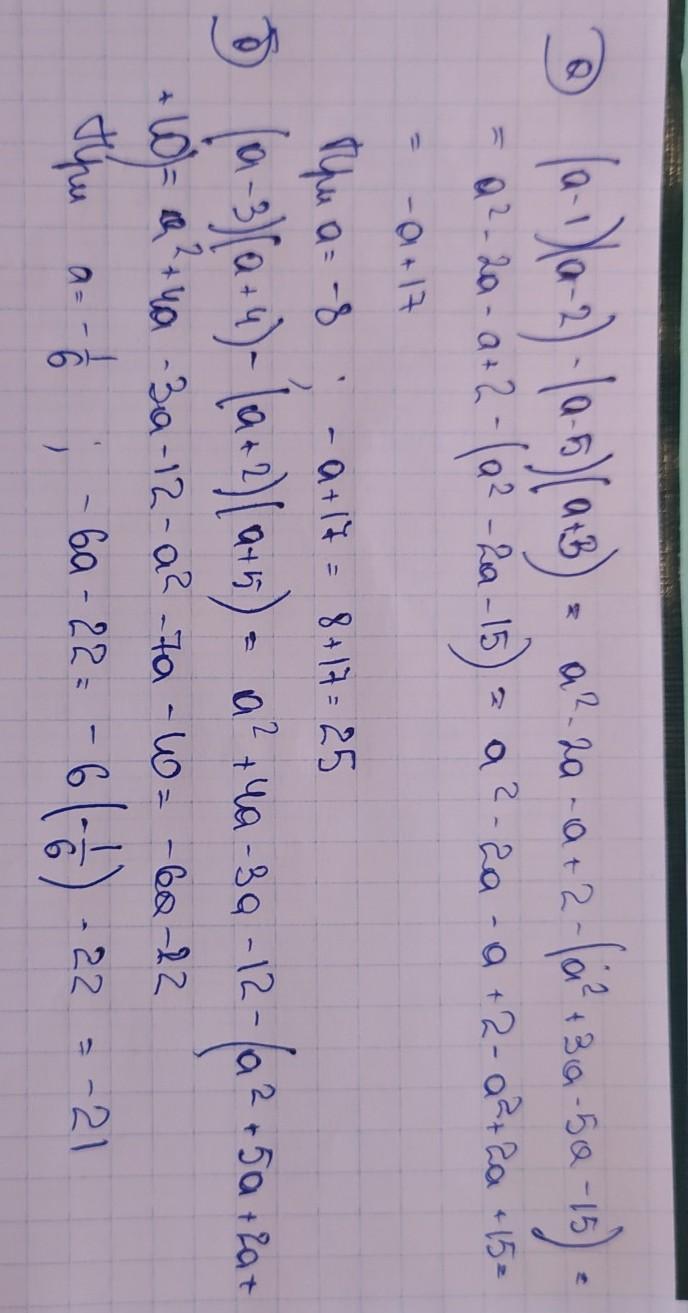 а) (a-1)(a-2) - (a-5)(a+3) = a² - 2a - a + 2 - (a² + 3a - 5a - 15) =
= a² - 2a - a + 2 - (a² - 2a - 15) = a² - 2a - a + 2 - a² + 2a + 15 =
= -a + 17
При a = -8 ; -a + 17 = 8 + 17 = 25
б) (a-3)(a+4) - (a+2)(a+5) = a² + 4a - 3a - 12 - (a² + 5a + 2a +
+ 10) = a² + 4a - 3a - 12 - a² - 7a - 10 = -6a - 22
При a = -1/6 ; -6a - 22 = -6(-1/6) - 22 = -21